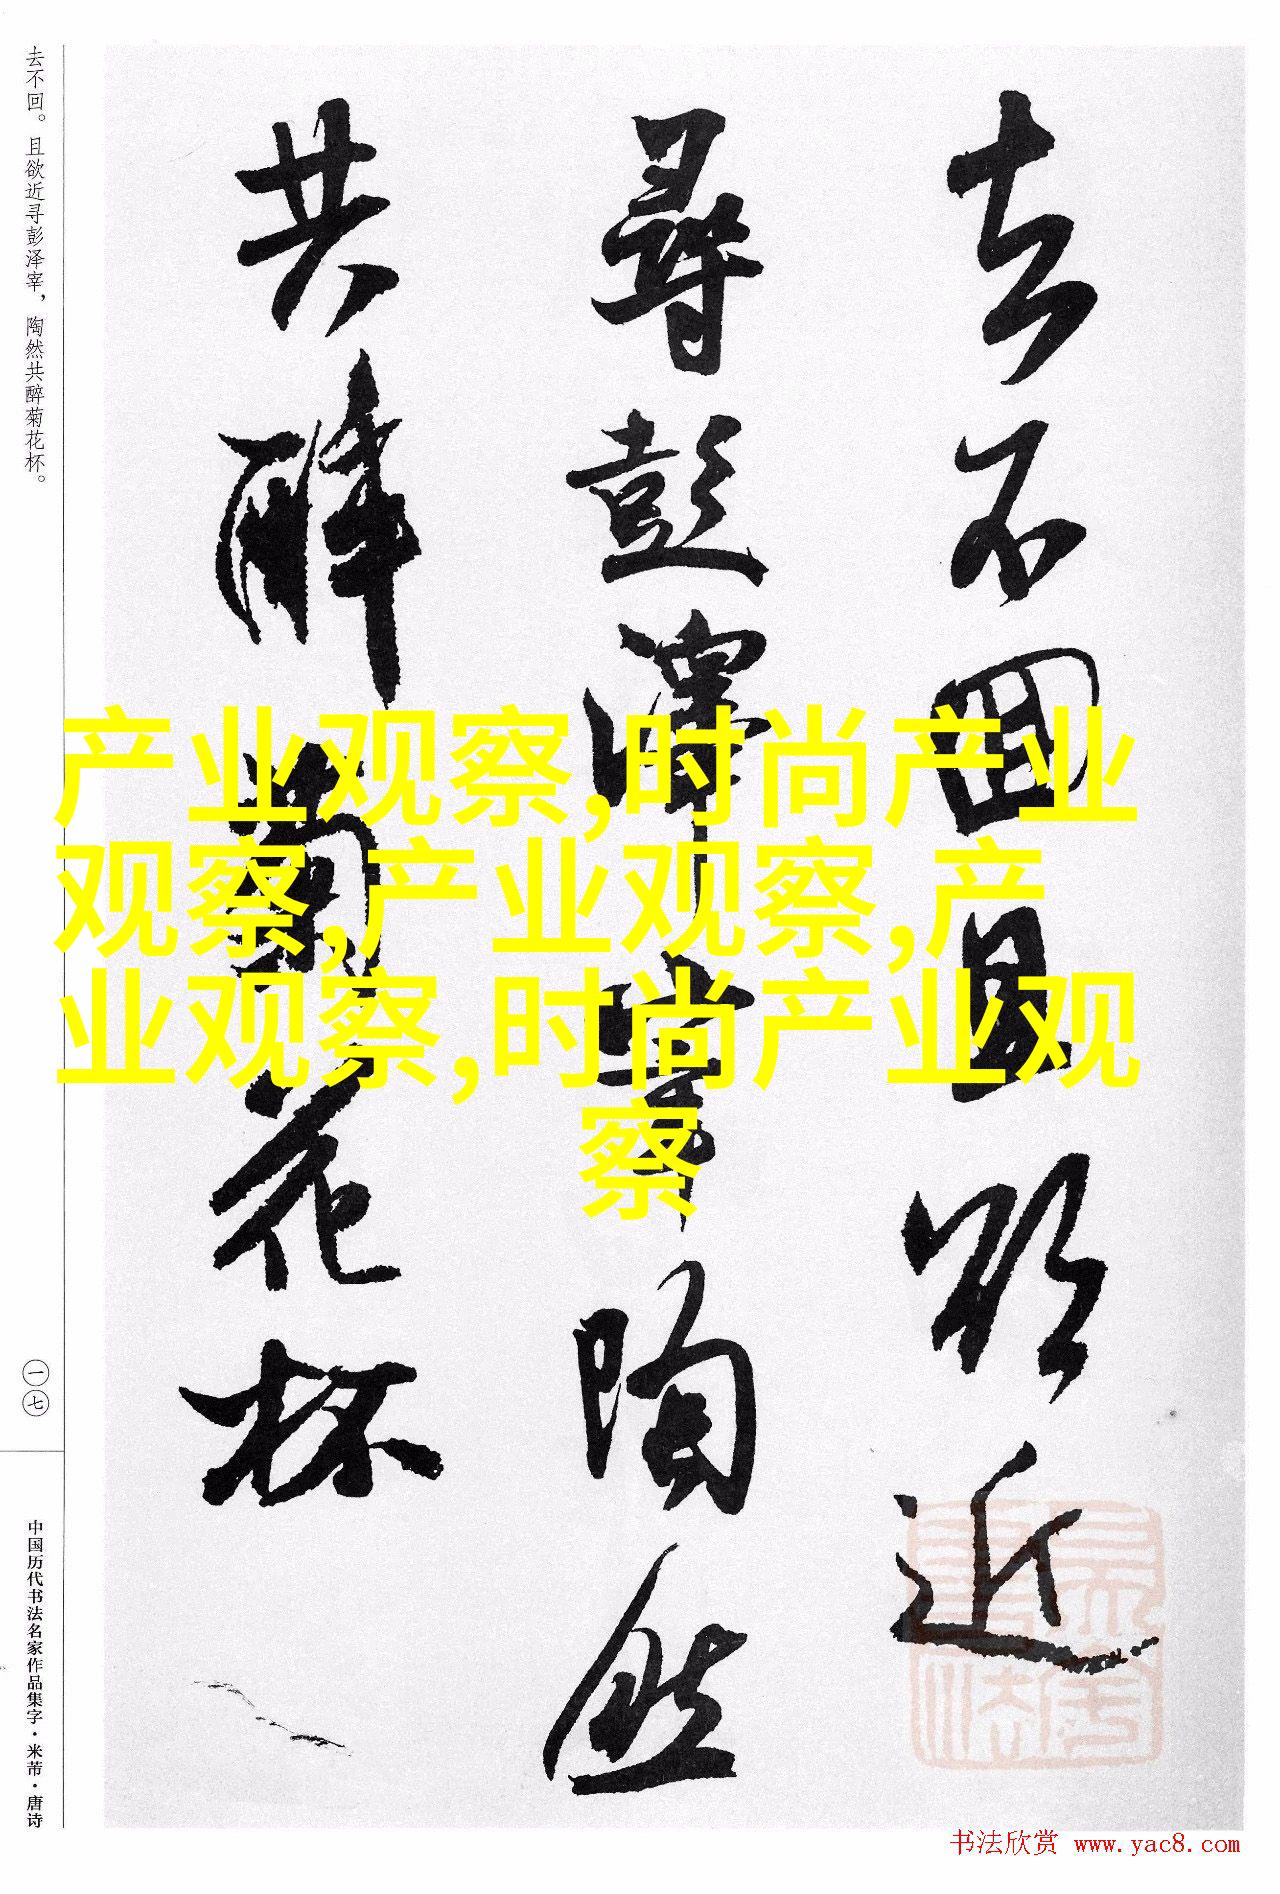 去不回且欲近
尋彭澤宰陶然
共醉菊花杯
去不回。且欲近寻彭泽宰，陶然共醉菊花杯。
一七
中国历代书法名家作品集字·米芾·唐诗
产业观察,时尚产业
观察,产业观察,产
业观察,时尚产业观
察
书法欣赏 www.yac8.com